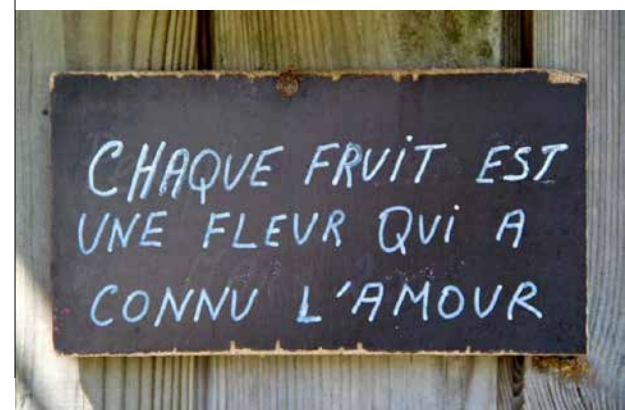 CHAQUE FRUiT EST
UNE FLEUR QUi A
CONNU L'AMOUR